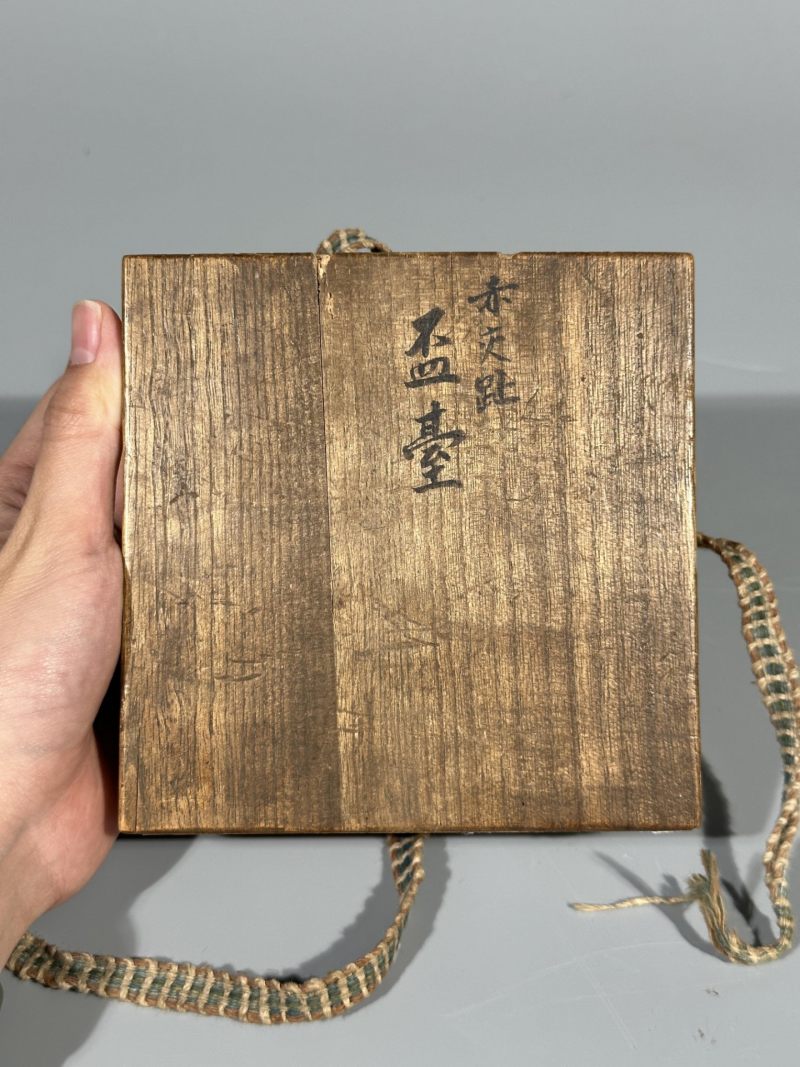 赤交趾
盃臺